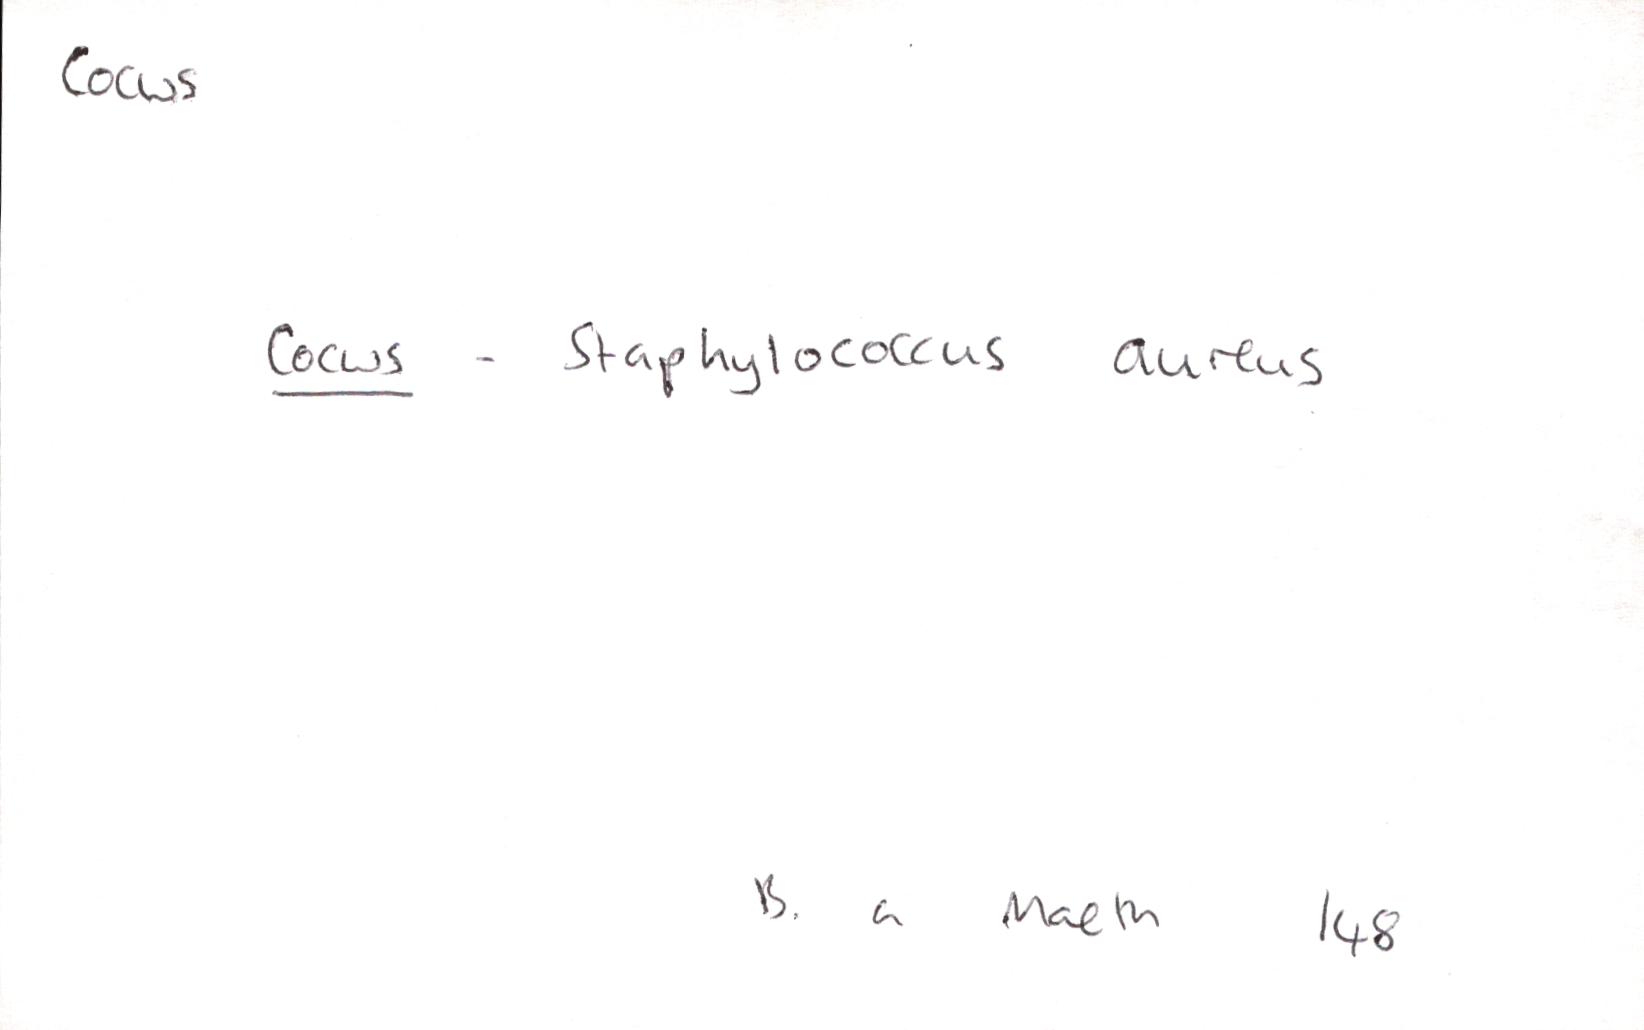 Cocws
Cocws - Staphylococcus aureus
B. a Maeth 148